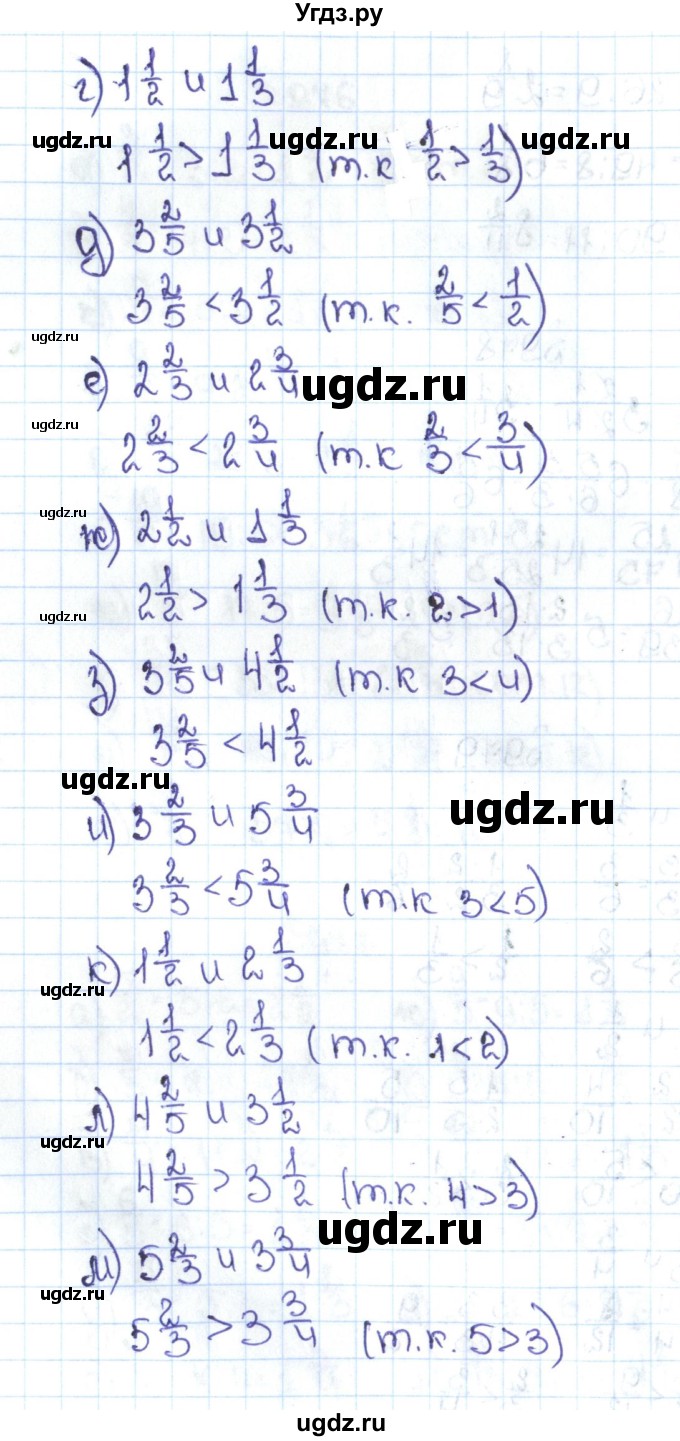 Угдз.ру
г) 1 1/2 и 1 1/3
ugdz.ru ugdz.ru ugdz.ru
1 1/2 > 1 1/3 (т.к. 1/2 > 1/3)
д) 3 2/5 и 3 1/2
3 2/5 < 3 1/2 (т.к. 2/5 < 1/2)
ugdz.ru
е) 2 2/3 и 2 3/4
ugdz.ru
ugdz.ru
2 2/3 < 2 3/4 (т.к 2/3 < 3/4)
ugdz.ru
ж) 2 1/2 и 1 1/3
2 1/2 > 1 1/3 (т.к. 2>1)
ugdz.ru
з) 3 2/5 и 4 1/2 (т.к 3<4)
3 2/5 < 4 1/2
ugdz.ru
ugdz.ru
и) 3 2/3 и 5 3/4
3 2/3 < 5 3/4 (т.к 3<5)
к) 1 1/2 и 2 1/3
ugdz.ru
1 1/2 < 2 1/3 (т.к. 1<2)
л) 4 2/5 и 3 1/2
ugdz.ru
4 2/5 > 3 1/2 (т.к. 4>3)
ugdz.ru
м) 5 2/3 и 3 3/4
ugdz.ru
5 2/3 > 3 3/4 (т.к. 5>3)
ugdz.ru